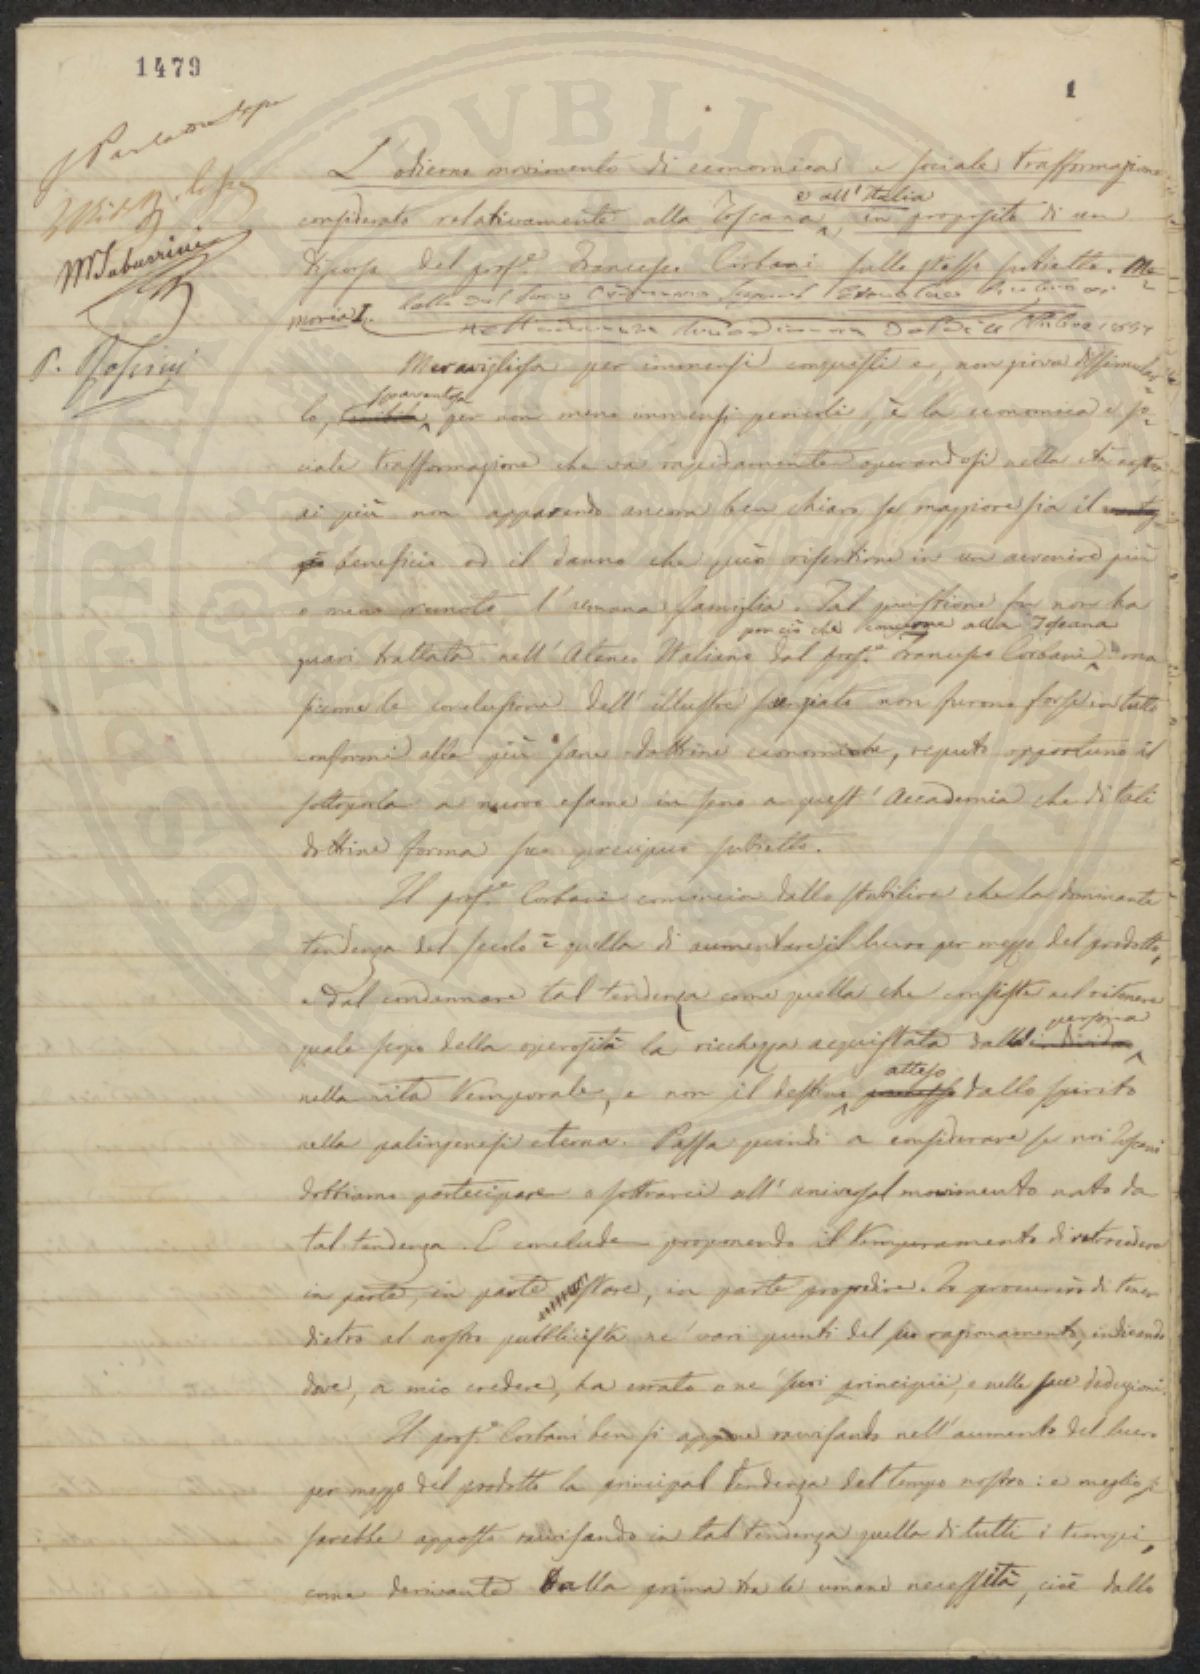 1479
1
M Tabarrini
L'odierno movimento di economica e sociale trasformazione
e all'Italia
considerato relativamente alla Toscana, in proposito di un
discorso del prof.e Francesco Corbani sullo stesso subietto. Me-
moria I. Letta dal Socio Ordinario
nell'adunanza
Maravigliosa per immensi conquisti e, non giova dissimular-
spaventosa
lo, per non meno immensi pericoli, è la economica e so-
ciale trasformazione che va rapidamente operandosi nella età nostra
ai più non apparendo ancora ben chiaro se maggiore sia il
beneficio od il danno che può risentirne in un avvenire più
o meno remoto l'umana famiglia. Tal quistione fu non ha
per ciò che concerne alla Toscana
guari trattata nell'Ateneo Italiano dal prof.e Francesco Corbani: ma
siccome le conclusioni dell'illustre scienziato non furono forse in tutto
conformi alle più sane dottrine economiche, reputo opportuno il
sottoporla a nuovo esame in seno a quest'Accademia che di tali
dottrine forma suo precipuo subietto.
Il prof.e Corbani comincia dallo stabilire che la dominante
tendenza del secolo è quella di aumentare il lucro per mezzo del prodotto,
e dal condannare tal tendenza come quella che consiste nel ritenere
persona
quale scopo della operosità la ricchezza acquistata dalla
atteso
nella vita temporale, e non il destino promesso dallo spirito
nella palingenesi eterna. Passa quindi a considerare se noi Toscani
dobbiamo partecipare o sottrarci all'universal movimento nato da
tal tendenza. E conclude proponendo il temperamento di retrocedere
in parte, in parte stare, in parte progredire. Io procurerò di tener
dietro al nostro pubblicista ne' vari punti del suo ragionamento, indicando
dove, a mio credere, ha errato o ne' suoi principii, o nelle sue deduzioni.
Il prof.e Corbani ben si appone ravvisando nell'aumento del lucro
per mezzo del prodotto la principal tendenza del tempo nostro: e meglio si
sarebbe apposto ravvisando in tal tendenza quella di tutti i tempi,
come derivante dalla prima tra le umane necessità, cioè dallo